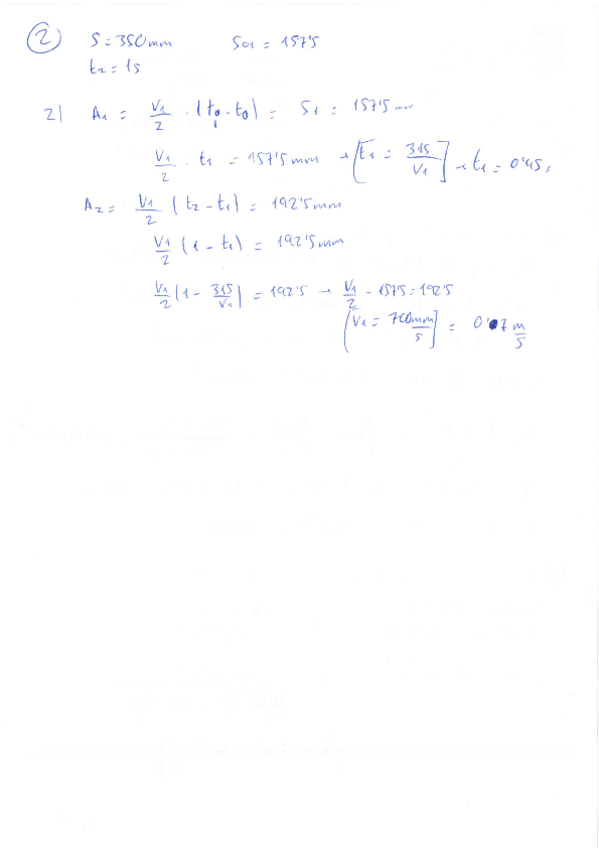 ② S = 350mm S01 = 157'5
t2 = 1s
2) A1 = V1/2 · (t1 - t0) = S1 = 157'5 mm
V1/2 · t1 = 157'5 mm → [t1 = 315/V1] → t1 = 0'45s
A2 = V1/2 (t2 - t1) = 192'5mm
V1/2 (1 - t1) = 192'5mm
V1/2 (1 - 315/V1) = 192'5 → V1/2 - 157'5 = 192'5
[V1 = 700mm/s] = 0'7 m/s